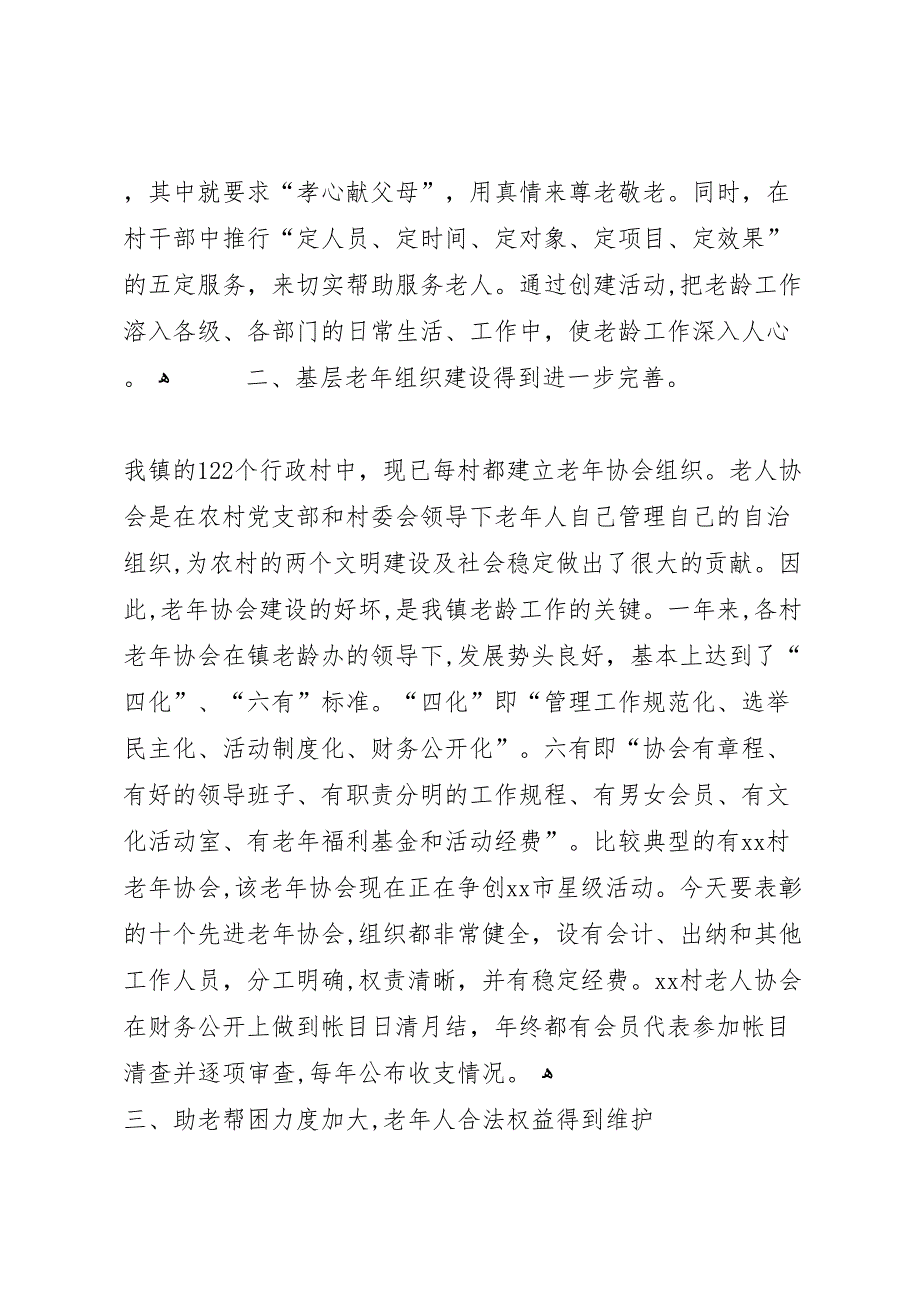 ，其中就要求“孝心献父母”，用真情来尊老敬老。同时，在
村干部中推行“定人员、定时间、定对象、定项目、定效果”
的五定服务，来切实帮助服务老人。通过创建活动,把老龄工作
溶入各级、各部门的日常生活、工作中，使老龄工作深入人心
。 ﻫ 二、基层老年组织建设得到进一步完善。
我镇的122个行政村中，现已每村都建立老年协会组织。老人协
会是在农村党支部和村委会领导下老年人自己管理自己的自治
组织,为农村的两个文明建设及社会稳定做出了很大的贡献。因
此,老年协会建设的好坏,是我镇老龄工作的关键。一年来,各村
老年协会在镇老龄办的领导下,发展势头良好，基本上达到了“
四化”、“六有”标准。“四化”即“管理工作规范化、选举
民主化、活动制度化、财务公开化”。六有即“协会有章程、
有好的领导班子、有职责分明的工作规程、有男女会员、有文
化活动室、有老年福利基金和活动经费”。比较典型的有xx村
老年协会,该老年协会现在正在争创xx市星级活动。今天要表彰
的十个先进老年协会,组织都非常健全，设有会计、出纳和其他
工作人员，分工明确,权责清晰，并有稳定经费。xx村老人协会
在财务公开上做到帐目日清月结，年终都有会员代表参加帐目
清查并逐项审查,每年公布收支情况。 ﻫ
三、助老帮困力度加大,老年人合法权益得到维护